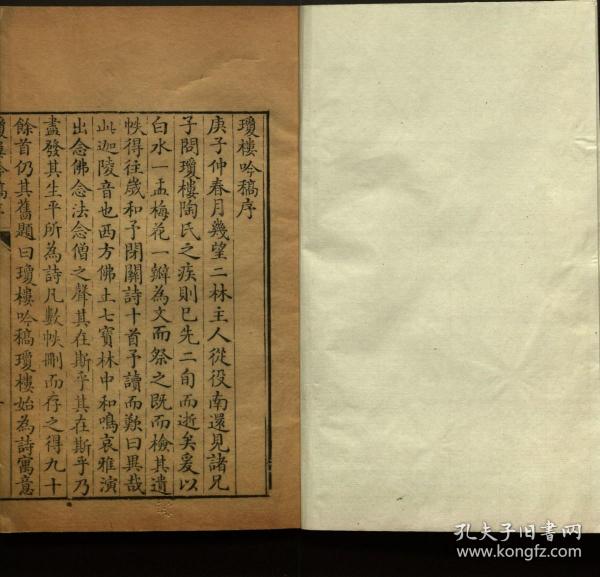 瓊樓吟稿序
庚子仲春月幾望二林主人從役南還見諸兄
子問瓊樓陶氏之疾則已先二旬而逝矣爰以
白水一盂梅花一瓣為文而祭之既而檢其遺
帙得往歲和予閉關詩十首予讀而歎曰異哉
此迦陵音也西方佛土七寶林中和鳴哀雅演
出念佛念法念僧之聲其在斯乎其在斯乎乃
盡發其生平所為詩凡數帙刪而存之得九十
餘首仍其舊題曰瓊樓吟稿瓊樓始為詩寓意
瓊樓吟稿序
一
孔夫子旧书网
www.kongfz.com